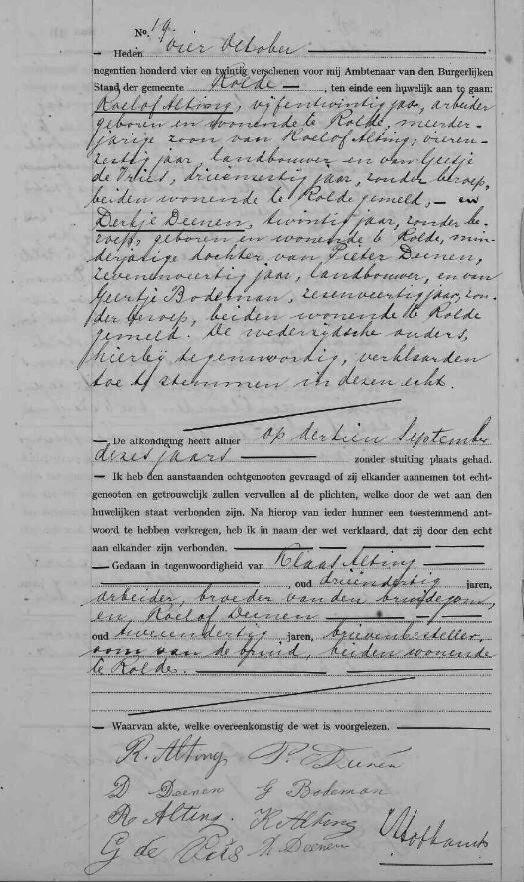 No. 19.
— Heden vier October
negentien honderd vier en twintig verschenen voor mij Ambtenaar van den Burgerlijken
Stand der gemeente Rolde — , ten einde een huwlijk aan te gaan:
Roelof Alting, vijfentwintig jaar, arbeider
geboren en wonende te Rolde, meerder-
jarige zoon van Roelof Alting, vieren-
zestig jaar, landbouwer en van Geesje
de Vries, drieënzestig jaar, zonder beroep,
beiden wonende te Rolde gemeld, — en
Dertje Deenen, twintig jaar, zonder be-
roep, geboren en wonende te Rolde, min-
derjarige dochter van Pieter Deenen,
zevenenveertig jaar, landbouwer, en van
Geertje Bodeman, zesenveertig jaar, zon-
der beroep, beiden wonende te Rolde
gemeld. De wederzijdsche ouders,
hierbij tegenwoordig, verklaarden
toe te stemmen in dezen echt.
— De afkondiging heeft alhier op dertien September
dezes jaars — zonder stuiting plaats gehad.
— Ik heb den aanstaanden echtgenooten gevraagd of zij elkander aannemen tot echt-
genooten en getrouwelijk zullen vervullen al de plichten, welke door de wet aan den
huwelijken staat verbonden zijn. Na hierop van ieder hunner een toestemmend ant-
woord te hebben verkregen, heb ik in naam der wet verklaard, dat zij door den echt
aan elkander zijn verbonden.
— Gedaan in tegenwoordigheid van Klaas Alting
, oud drieëndertig jaren,
arbeider, broeder van den bruidegom,
en Roelof Deenen
oud tweeendertig jaren, brievenbesteller,
oom van de bruid, beiden wonende
te Rolde.
— Waarvan akte, welke overeenkomstig de wet is voorgelezen.
R. Alting P. Deenen
D Deenen G Bodeman
R Alting. K Alting
G de Vries R Deenen